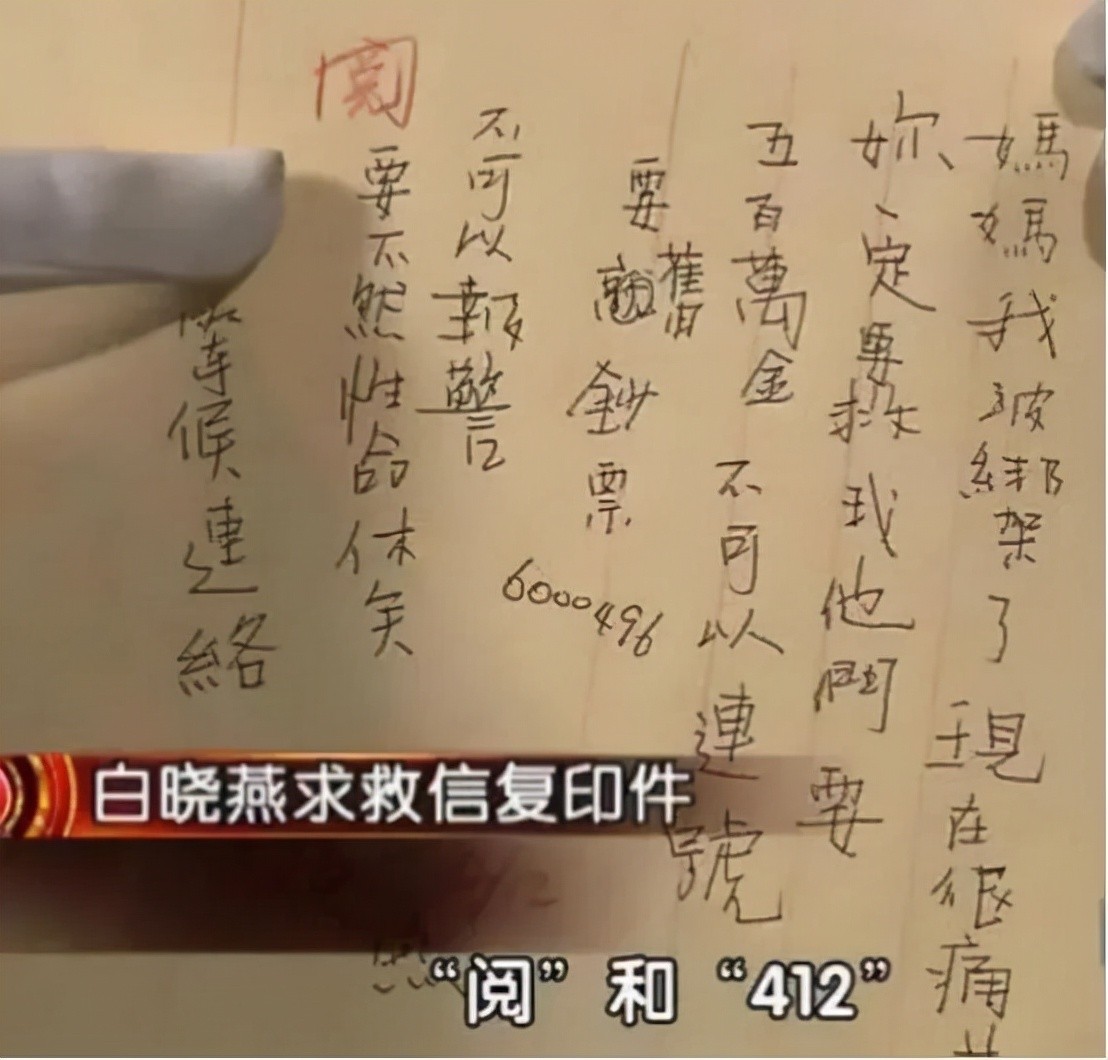 媽媽我被綁架了現在很痛苦
妳一定要救我他們要
五百萬美金不可以連號
要舊鈔票
6000496
不可以報警
要不然性命休矣
閱
等候連絡
白晓燕求救信复印件
“阅”和“412”